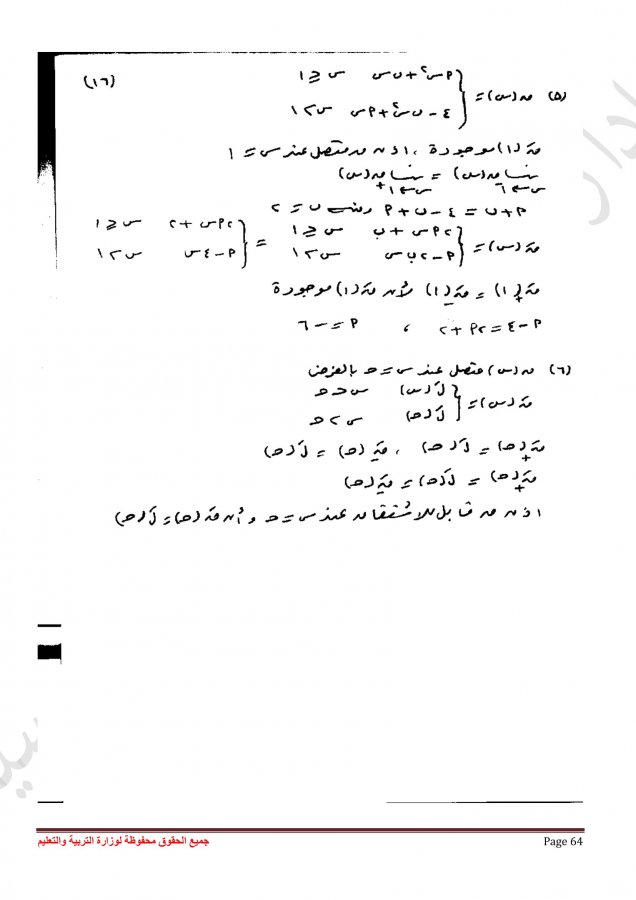 (١٦)
(٥) ق(س) = { أس٢ + ب س ، س ≤ ١
٤ - ب س٢ + أس ، س > ١
قَ(١) موجودة ، اذن ق متصل عند س = ١
نهــا ق(س) = نهــا ق(س)
س←١- س←١+
أ + ب = ٤ - ب + أ ومنه ب = ٢
قَ(س) = { ٢أس + ب س ≤ ١ = { ٢أس + ٢ س ≤ ١
أ - ٢ب س س > ١ أ - ٤س س > ١
قَ+(١) = قَ-(١) لأن قَ(١) موجودة
أ - ٤ = ٢أ + ٢ ، أ = - ٦
(٦) ق(س) متصل عند س = جـ بالفرض
قَ(س) = { لَ(س) س < جـ
لَ(جـ) س > جـ
قَ+(جـ) = لَ(جـ) ، قَ-(جـ) = لَ(جـ)
قَ+(جـ) = لَ(جـ) = قَ-(جـ)
اذن ق قابل للاشتقاق عند س = جـ وأن قَ(جـ) = لَ(جـ)
جميع الحقوق محفوظة لوزارة التربية والتعليم
Page 64